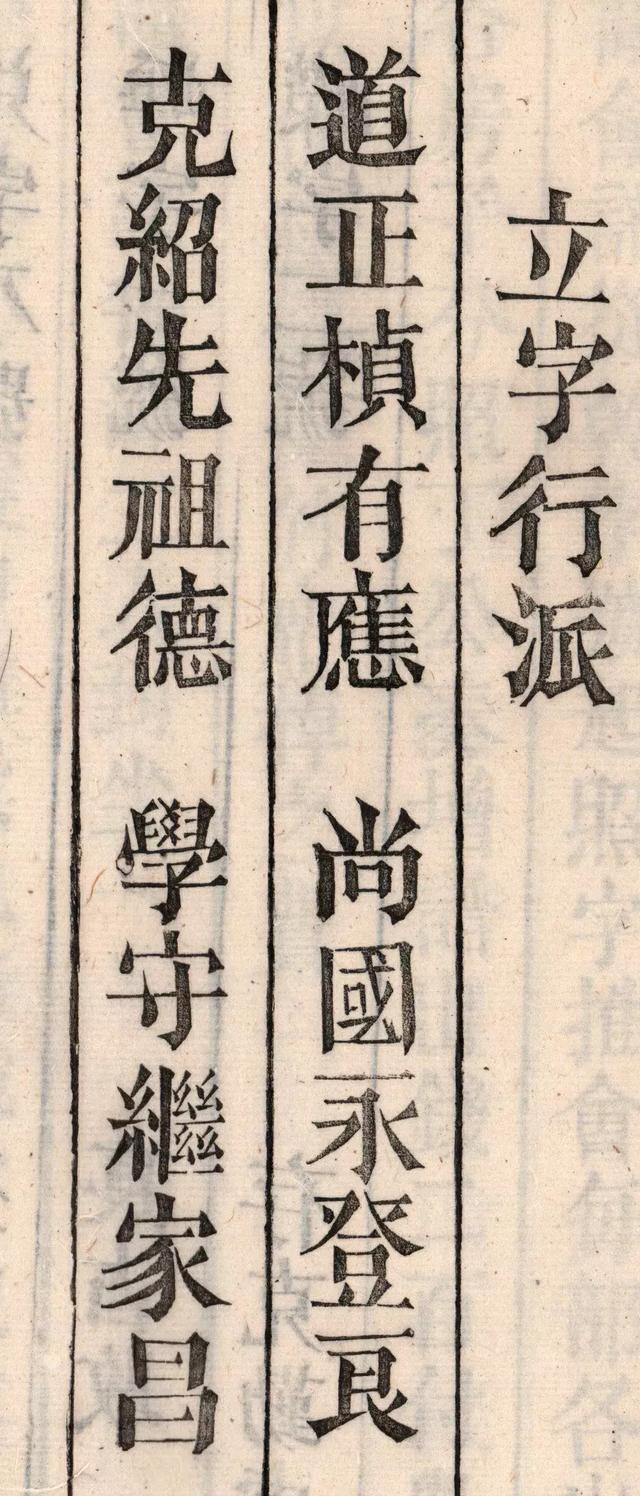 立字行派
道正楨有應 尚國永登良
克紹先祖德 學守繼家昌